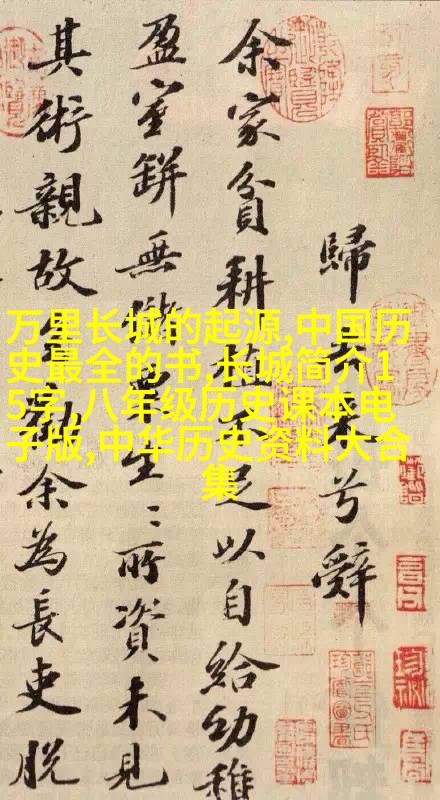 万里长城的起源,中国历
史最全的书,长城简介1
5字,八年级历史课本电
子版,中华历史资料大合
集
歸兮辭
余家貧耕足以自給幼稚
盈室缾無生〻所資未見
其術親故余為長吏脫